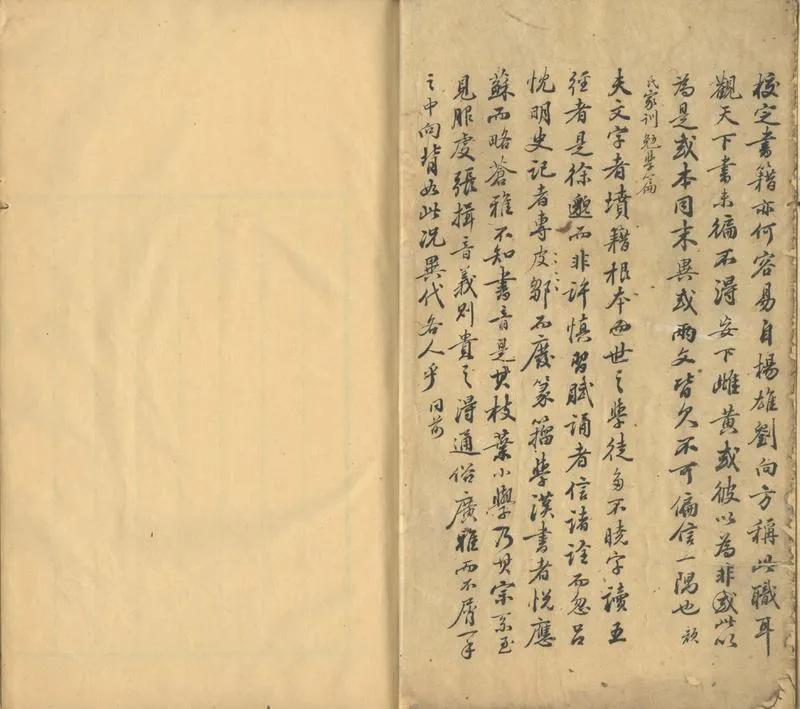 校定書籍亦何容易自楊雄劉向方稱此職耳
觀天下書未徧不得妄下雌黃或彼以為非或此以
為是或本同末異或兩文皆欠不可偏信一隅也 顏
氏家训 勉學篇
夫文字者墳籍根本也世之學徒多不曉字讀五
経者是徐邈而非許慎習賦誦者信諸詮而忽呂
忱明史記者專皮鄒而廢篆籀學漢書者悅應
蘇而略蒼雅不知書音是其枝葉小學乃其宗系至
見服虔張揖音義則貴之得通俗廣雅而不屑一手
之中向背如此况異代各人乎 同前